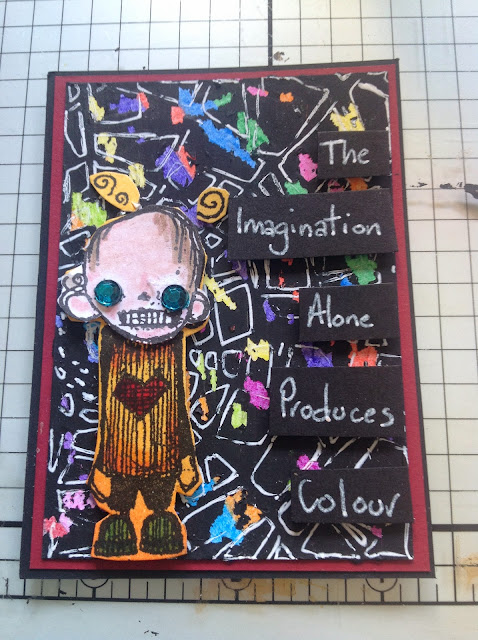 The
Imagination
Alone
Produces
Colour